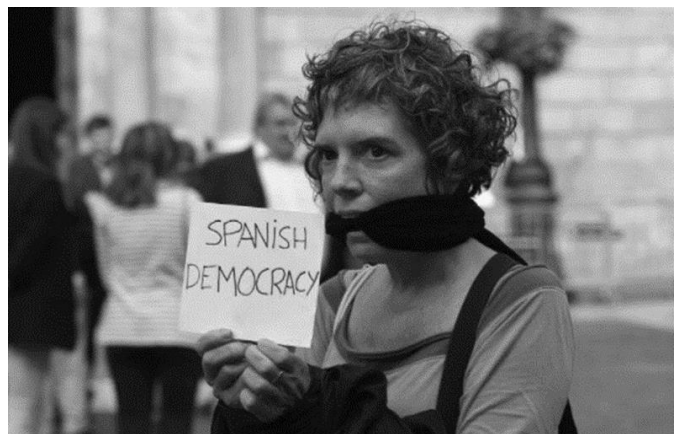 SPANISH
DEMOCRACY